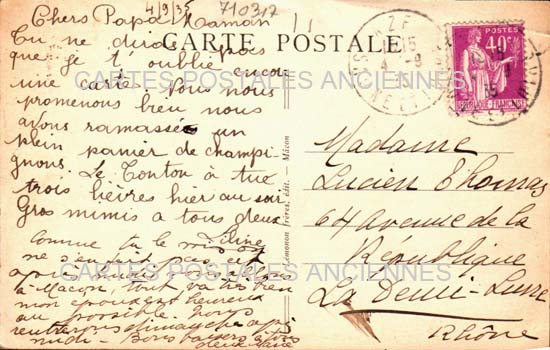 4/9/35
710317
Chers Papa Maman
CARTE POSTALE
Tu ne diras pas
que je t'oublie encore
une carte. Nous nous
promenons bien nous
avons ramassée un
plein panier de champi-
gnons. Le Tonton à tué
trois lièvres hier au soir
Gros mimis a tous deux
Line
Comme tu le
ne s'ennuit pas et
a Macon, tout va très bien
au possible. Nous
rentrerons dimanche après
midi - Bons baisers à tous
deux
Madame
Lucien Thomas
64 Avenue de la
République
La Demi-Lune
Rhône
40c
REPUBLIQUE FRANÇAISE
frères, édit. - Mâcon
CARTES POSTALES ANCIENNES
CARTES POSTALES ANCIENNES